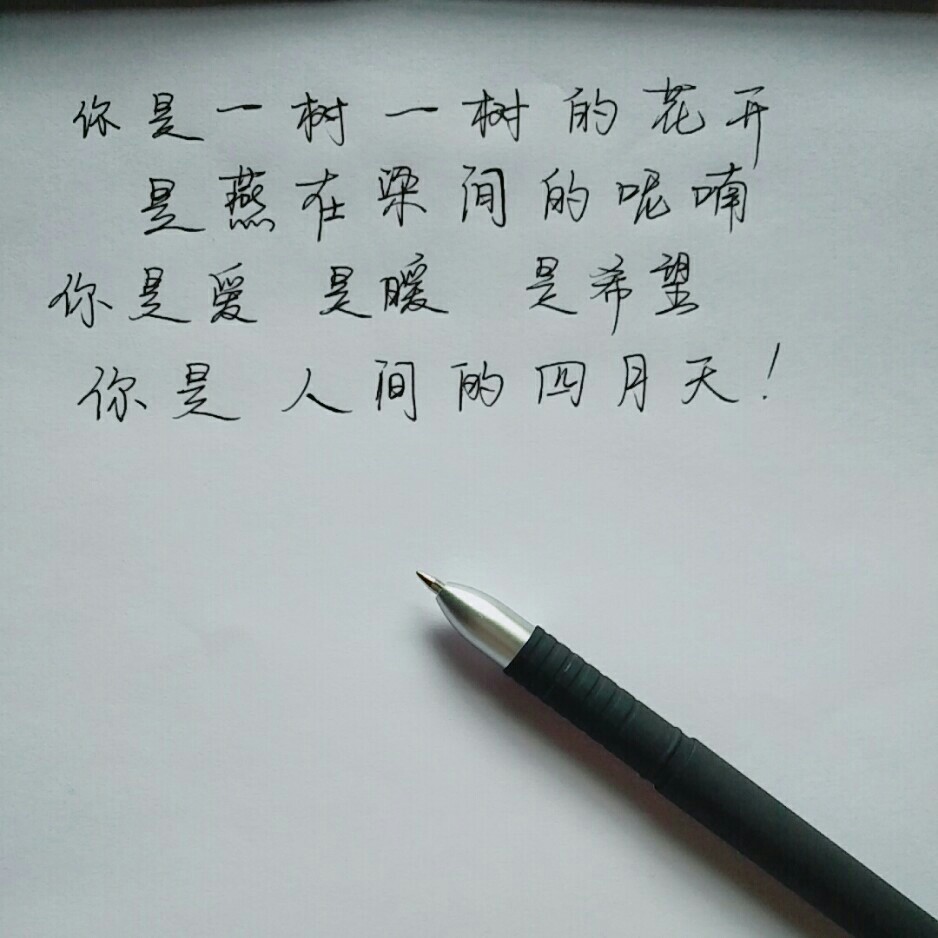 你是一树一树的花开
是燕在梁间的呢喃
你是爱 是暖 是希望
你是人间的四月天！